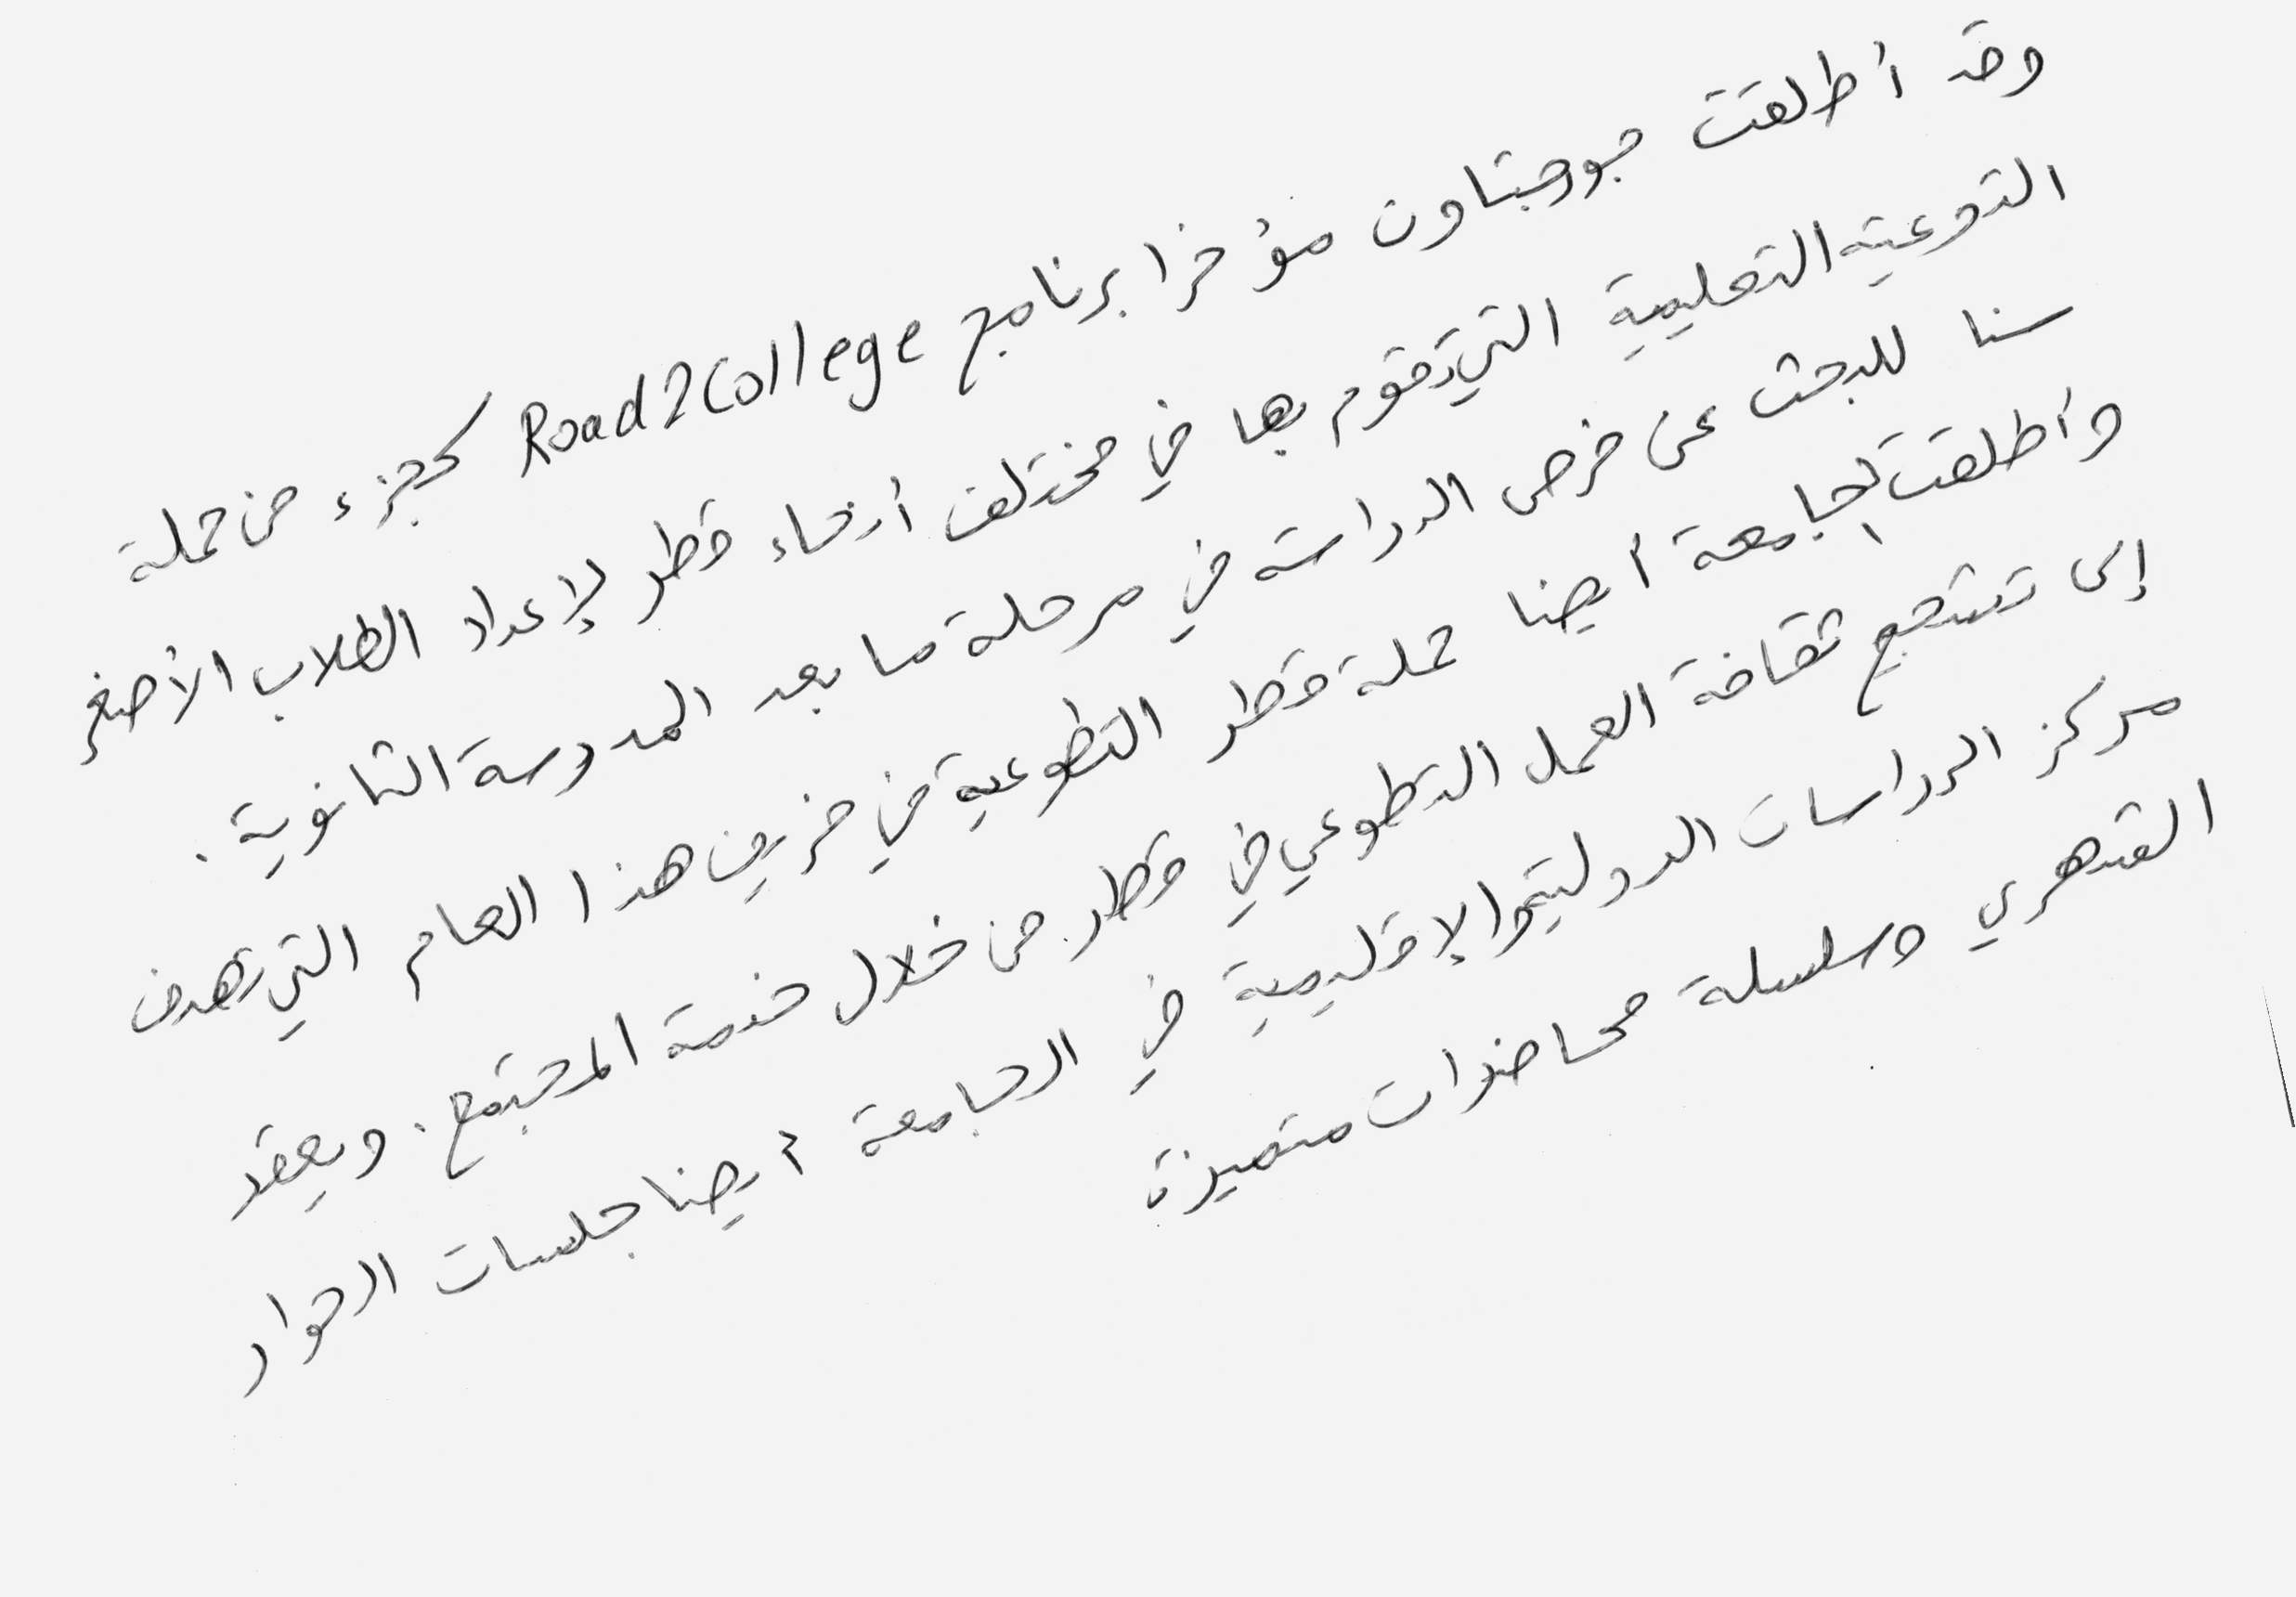 وقد أطلقت جورجتاون مؤخرا برنامج Road2College كجزء من حملة
التوعية التعليمية التي تقوم بها في مختلف أرجاء قطر لإعداد الطلاب الأصغر
سنا للبحث عن فرص الدراسة في مرحلة ما بعد المدرسة الثانوية.
وأطلقت الجامعة أيضا حملة قطر التطوعية في خريف هذا العام التي تهدف
إلى تشجيع ثقافة العمل التطوعي في قطر من خلال خدمة المجتمع. ويعقد
مركز الدراسات الدولية والإقليمية في الجامعة أيضا جلسات الحوار
الشهري وسلسلة محاضرات متميزة